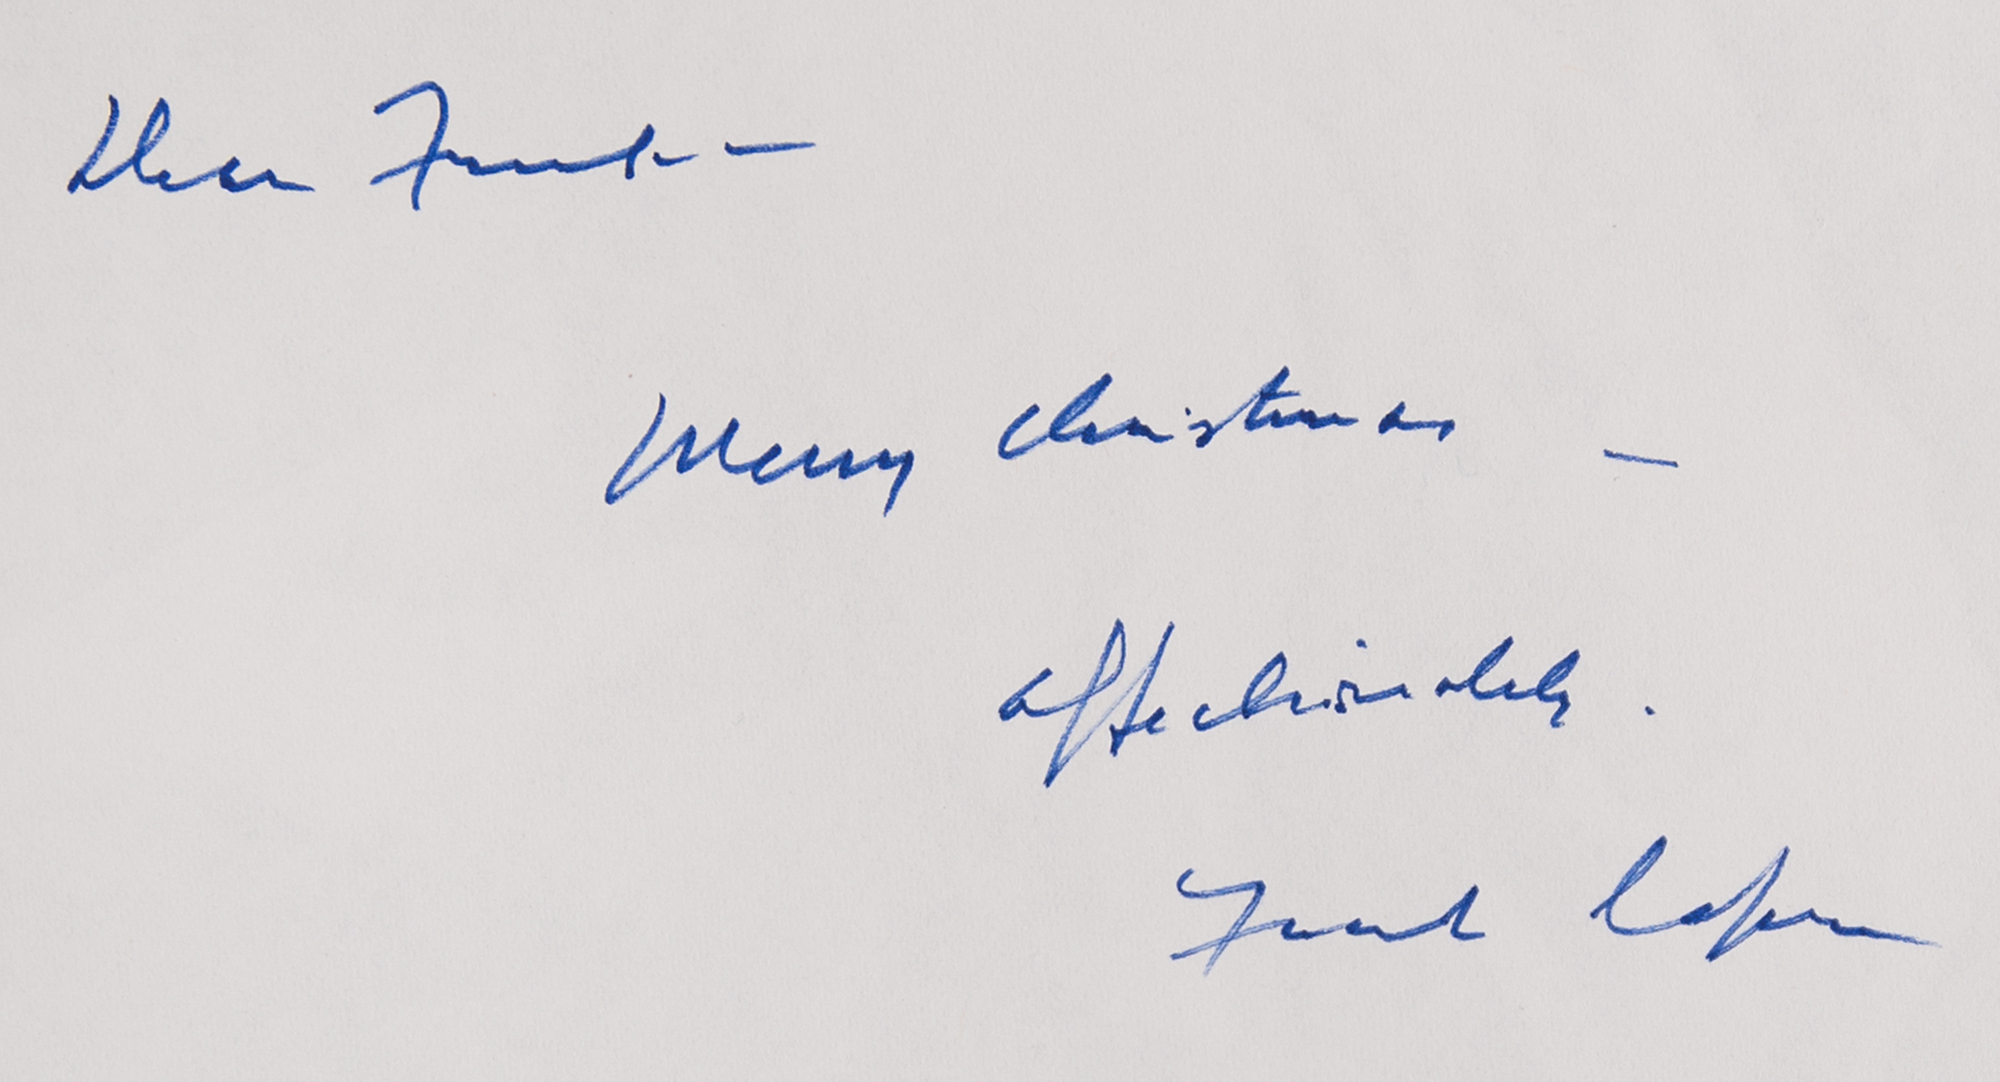 Dear Frank —
Merry Christmas —
affectionately.
Frank Capra